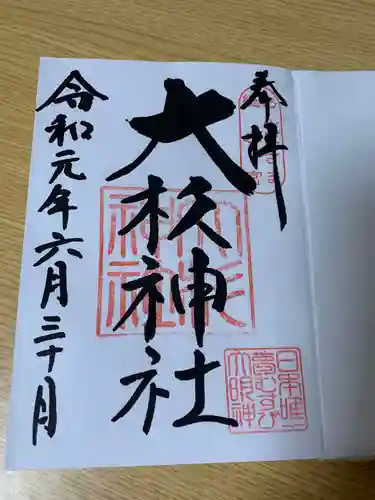 奉拝
大杉神社
令和元年六月三十月
日本唯一
夢むすび
大明神